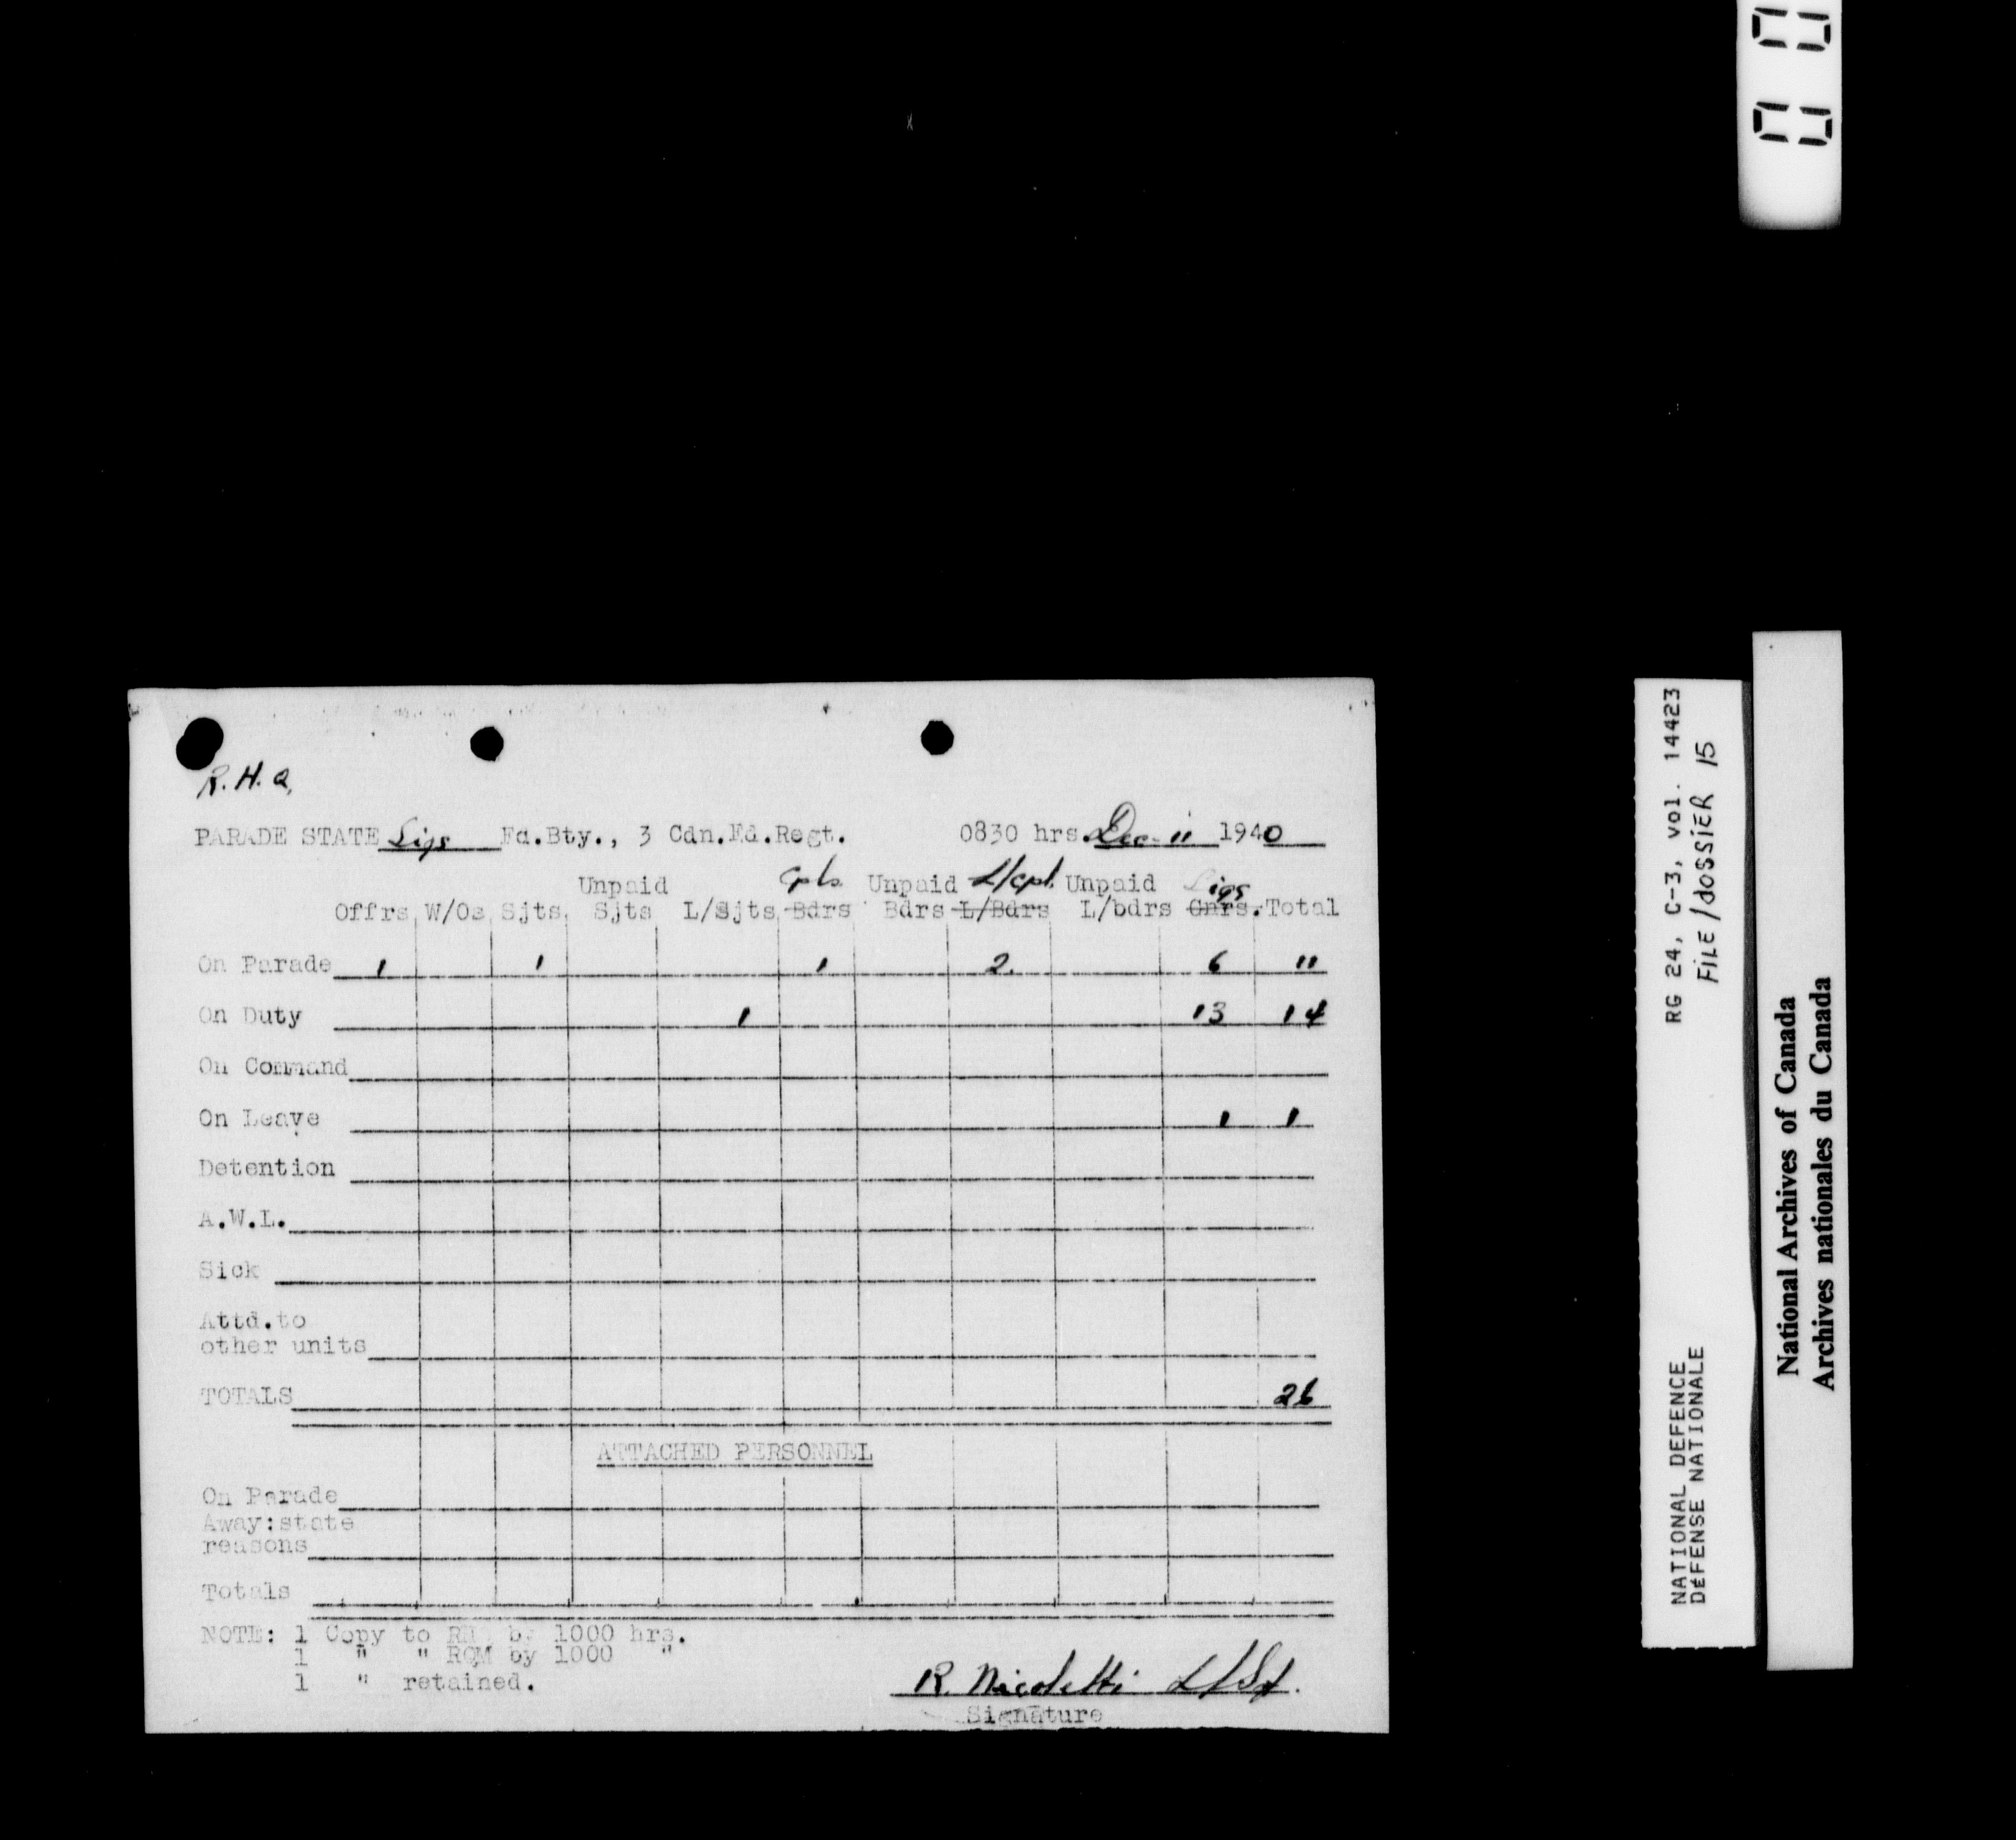 R.H.Q.
PARADE STATE Sigs Fd.Bty., 3 Cdn.Fd.Regt. 0830 hrs. Dec 11 1940
Unpaid Cpls. Unpaid L/Cpl. Unpaid Sigs
Offrs W/Os Sjts Sjts L/Sjts Bdrs Bdrs L/Bdrs L/bdrs Gnrs. Total
On Parade 1 1 1 2 6 11
On Duty 1 13 14
On Command
On Leave 1 1
Detention
A.W.L.
Sick
Attd.to
other units
TOTALS 26
ATTACHED PERSONNEL
On Parade
Away:state
reasons
Totals
NOTE: 1 Copy to RHQ by 1000 hrs.
1 " " RQM by 1000 "
1 " retained.
R. Nicoletti L/Sjt.
Signature
RG 24, C-3, vol. 14423
FILE/dossier 15
NATIONAL DEFENCE
DÉFENSE NATIONALE
National Archives of Canada
Archives nationales du Canada